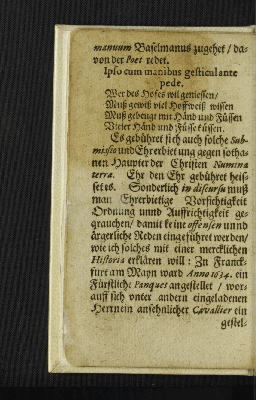 manuum Baselmanus zugehet / da-
von der Poet redet.
Ipso cum manibus gesticulante
pede.
Wer des Hofes wil geniessen/
Muß gewiß viel Hoffweiß wissen
Muß gebeugt mit Händ und Füssen
Vieler Händ und Füsse küssen.
Es gebühret sich auch solche Sub-
mission und Ehrerbietung gegen sotha-
nen Häupter der Christen Numina
terræ. Ehr den Ehr gebühret heis-
set es. Sonderlich in discursu muß
man Ehrerbietige Vorsichtigkeit
Ordnung unnd Auffrichtigkeit ge-
grauchen/ damit keine offensen unnd
ärgerliche Reden eingeführet werden/
wie ich solches mit einer mercklichen
Historia erklären will : Zu Franck-
furt am Mayn ward Anno 1634. ein
Fürstliche Panquet angestellet / wor-
auff sich vnter andern eingeladenen
Herrnein ansehnlicher Cavallier ein
gestel-